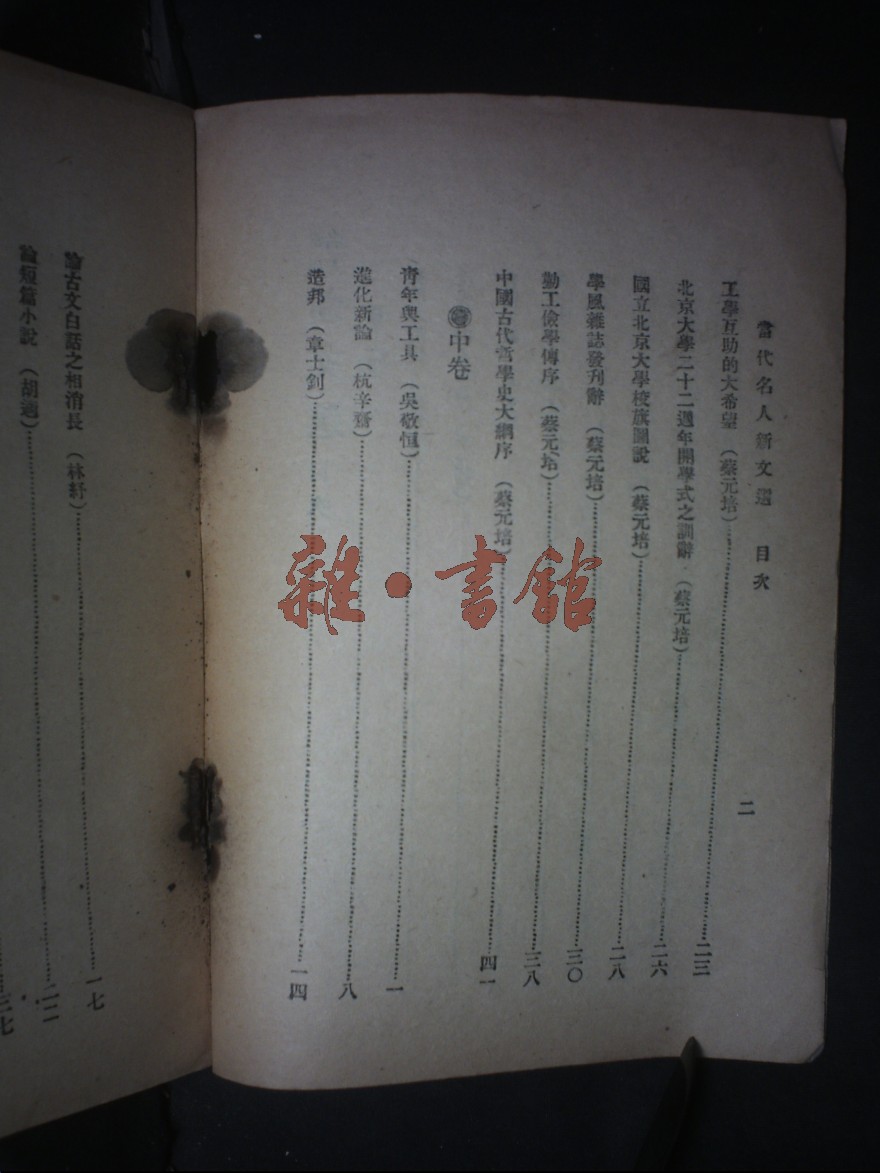 當代名人新文選 目次 二
工學互助的大希望 (蔡元培)……二三
北京大學二十二週年開學式之訓辭 (蔡元培)……二六
國立北京大學校旗圖說 (蔡元培)……二八
學風雜誌發刊辭 (蔡元培)……三〇
勤工儉學傳序 (蔡元培)……三八
中國古代哲學史大綱序 (蔡元培)……四一
中卷
青年與工具 (吳敬恒)……一
進化新論 (杭辛齋)……八
造邦 (章士釗)……一四
論古文白話之相消長 (林紓)……一七
論短篇小說 (胡適)……二二
二七
雜·書館